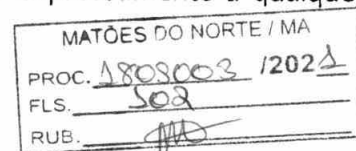 a qualque
MATÕES DO NORTE / MA
PROC. 1803003 /2021
FLS. 502
RUB.